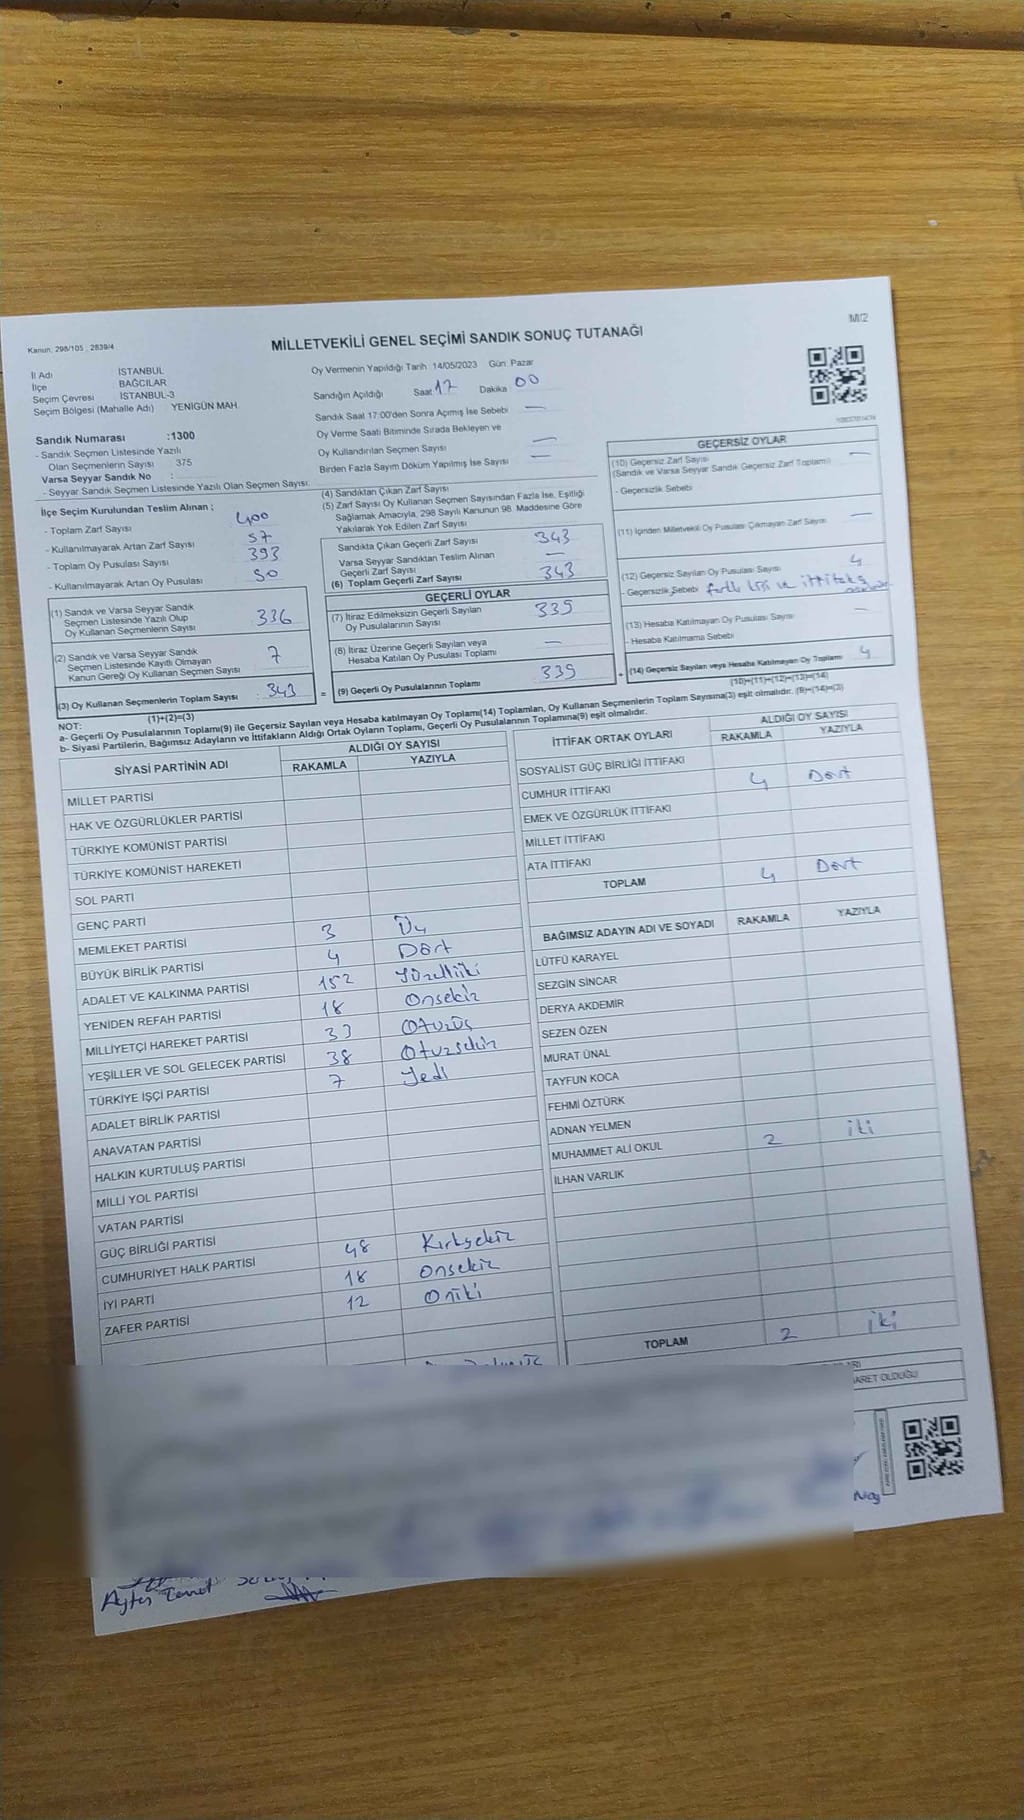 Kanun: 298/105 , 2839/4
MİLLETVEKİLİ GENEL SEÇİMİ SANDIK SONUÇ TUTANAĞI
M/2
İl Adı İSTANBUL
İlçe BAĞCILAR
Seçim Çevresi İSTANBUL-3
Seçim Bölgesi (Mahalle Adı) YENİGÜN MAH.
Sandık Numarası :1300
- Sandık Seçmen Listesinde Yazılı
Olan Seçmenlerin Sayısı : 375
Varsa Seyyar Sandık No :
- Seyyar Sandık Seçmen Listesinde Yazılı Olan Seçmen Sayısı:
Oy Vermenin Yapıldığı Tarih 14/05/2023 Gün Pazar
Sandığın Açıldığı Saat 17 Dakika 00
Sandık Saat 17:00'den Sonra Açımış İse Sebebi —
Oy Verme Saati Bitiminde Sırada Bekleyen ve
Oy Kullandırılan Seçmen Sayısı —
Birden Fazla Sayım Döküm Yapılmış İse Sayısı —
İlçe Seçim Kurulundan Teslim Alınan ;
- Toplam Zarf Sayısı 400
- Kullanılmayarak Artan Zarf Sayısı 57
- Toplam Oy Pusulası Sayısı 393
- Kullanılmayarak Artan Oy Pusulası 50
(1) Sandık ve Varsa Seyyar Sandık
Seçmen Listesinde Yazılı Olup
Oy Kullanan Seçmenlerin Sayısı 336
(2) Sandık ve Varsa Seyyar Sandık
Seçmen Listesinde Kayıtlı Olmayan
Kanun Gereği Oy Kullanan Seçmen Sayısı 7
(3) Oy Kullanan Seçmenlerin Toplam Sayısı : 343
(1)+(2)=(3)
(4) Sandıktan Çıkan Zarf Sayısı
(5) Zarf Sayısı Oy Kullanan Seçmen Sayısından Fazla İse, Eşitliği
Sağlamak Amacıyla, 298 Sayılı Kanunun 98. Maddesine Göre
Yakılarak Yok Edilen Zarf Sayısı
Sandıkta Çıkan Geçerli Zarf Sayısı 343
Varsa Seyyar Sandıktan Teslim Alınan
Geçerli Zarf Sayısı —
(6) Toplam Geçerli Zarf Sayısı 343
GEÇERLİ OYLAR
(7) İtiraz Edilmeksizin Geçerli Sayılan
Oy Pusulalarının Sayısı 339
(8) İtiraz Üzerine Geçerli Sayılan veya
Hesaba Katılan Oy Pusulası Toplamı —
= (9) Geçerli Oy Pusulalarının Toplamı 339 +
GEÇERSİZ OYLAR
(10) Geçersiz Zarf Sayısı —
(Sandık ve Varsa Seyyar Sandık Geçersiz Zarf Toplamı)
- Geçersizlik Sebebi
(11) İçinden Milletvekili Oy Pusulası Çıkmayan Zarf Sayısı —
(12) Geçersiz Sayılan Oy Pusulası Sayısı 4
- Geçersizlik Sebebi
(13) Hesaba Katılmayan Oy Pusulası Sayısı —
- Hesaba Katılmama Sebebi
(14) Geçersiz Sayılan veya Hesaba Katılmayan Oy Toplamı 4
(10)+(11)+(12)+(13)=(14)
NOT:
a- Geçerli Oy Pusulalarının Toplamı(9) ile Geçersiz Sayılan veya Hesaba katılmayan Oy Toplamı(14) Toplamları, Oy Kullanan Seçmenlerin Toplam Sayısına(3) eşit olmalıdır. (9)+(14)=(3)
b- Siyasi Partilerin, Bağımsız Adayların ve İttifakların Aldığı Ortak Oyların Toplamı, Geçerli Oy Pusulalarının Toplamına(9) eşit olmalıdır.
SİYASİ PARTİNİN ADI
ALDIĞI OY SAYISI
RAKAMLA YAZIYLA
MİLLET PARTİSİ
HAK VE ÖZGÜRLÜKLER PARTİSİ
TÜRKİYE KOMÜNİST PARTİSİ
TÜRKİYE KOMÜNİST HAREKETİ
SOL PARTİ
GENÇ PARTİ
MEMLEKET PARTİSİ 3 Üç
BÜYÜK BİRLİK PARTİSİ 4 Dört
ADALET VE KALKINMA PARTİSİ 152 Yüzelliiki
YENİDEN REFAH PARTİSİ 18 Onsekiz
MİLLİYETÇİ HAREKET PARTİSİ 33 Otuzüç
YEŞİLLER VE SOL GELECEK PARTİSİ 38 Otuzsekiz
TÜRKİYE İŞÇİ PARTİSİ 7 Yedi
ADALET BİRLİK PARTİSİ
ANAVATAN PARTİSİ
HALKIN KURTULUŞ PARTİSİ
MİLLİ YOL PARTİSİ
VATAN PARTİSİ
GÜÇ BİRLİĞİ PARTİSİ
CUMHURİYET HALK PARTİSİ 48 Kırksekiz
İYİ PARTİ 18 Onsekiz
ZAFER PARTİSİ 12 Oniki
İTTİFAK ORTAK OYLARI
ALDIĞI OY SAYISI
RAKAMLA YAZIYLA
SOSYALİST GÜÇ BİRLİĞİ İTTİFAKI
CUMHUR İTTİFAKI 4 Dört
EMEK VE ÖZGÜRLÜK İTTİFAKI
MİLLET İTTİFAKI
ATA İTTİFAKI
TOPLAM 4 Dört
BAĞIMSIZ ADAYIN ADI VE SOYADI RAKAMLA YAZIYLA
LÜTFÜ KARAYEL
SEZGİN SİNCAR
DERYA AKDEMİR
SEZEN ÖZEN
MURAT ÜNAL
TAYFUN KOCA
FEHMİ ÖZTÜRK
ADNAN YELMEN
MUHAMMET ALİ OKUL 2 iki
İLHAN VARLIK
TOPLAM 2 iki